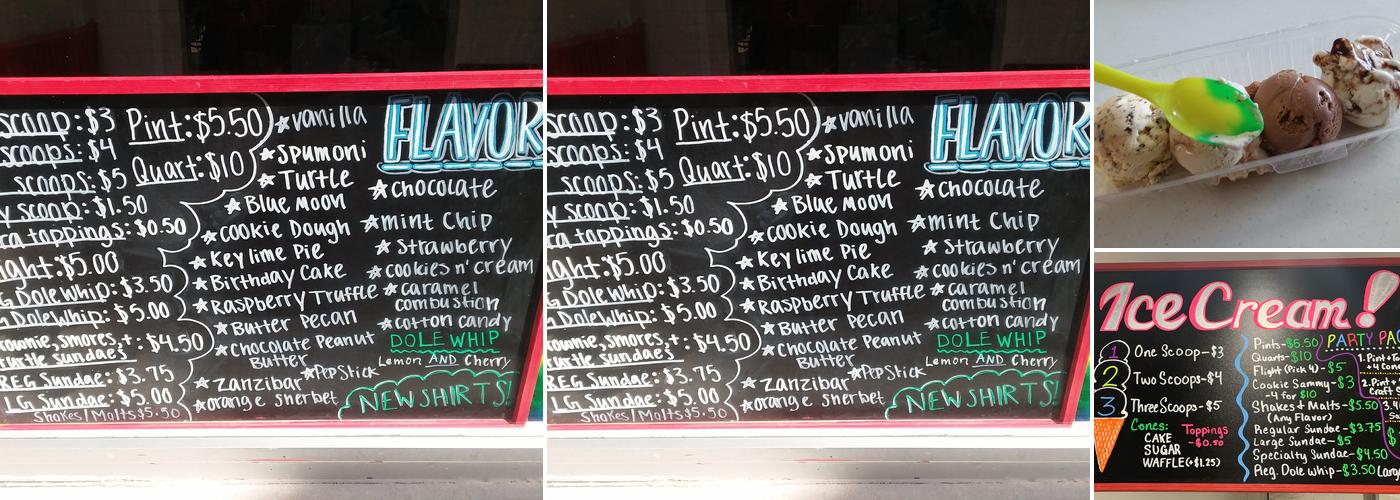 scoop: $3
scoops: $4
scoops: $5
y scoop: $1.50
ra toppings: $0.50
ight: $5.00
G Dole Whip: $3.50
G Dolewhip: $5.00
rownie, smores, + : $4.50
turtle sundaes
REG Sundae: $3.75
LG Sundae: $5.00
Shakes/Malts $5.50
Pint: $5.50
Quart: $10
vanilla
Spumoni
Turtle
Blue Moon
Cookie Dough
Key lime Pie
Birthday Cake
Raspberry Truffle
Butter Pecan
Chocolate Peanut
Butter
PepStick
Zanzibar
orange sherbet
FLAVOR
Chocolate
mint Chip
Strawberry
cookies n' cream
caramel
combustion
cotton candy
DOLE WHIP
Lemon AND Cherry
NEW SHIRTS!
scoop: $3
scoops: $4
scoops: $5
y scoop: $1.50
ra toppings: $0.50
ight: $5.00
G Dole Whip: $3.50
G Dolewhip: $5.00
rownie, smores, + : $4.50
turtle sundaes
REG Sundae: $3.75
LG Sundae: $5.00
Shakes/Malts $5.50
Pint: $5.50
Quart: $10
vanilla
Spumoni
Turtle
Blue Moon
Cookie Dough
Key lime Pie
Birthday Cake
Raspberry Truffle
Butter Pecan
Chocolate Peanut
Butter
PepStick
Zanzibar
orange sherbet
FLAVOR
Chocolate
mint Chip
Strawberry
cookies n' cream
caramel
combustion
cotton candy
DOLE WHIP
Lemon AND Cherry
NEW SHIRTS!
Ice Cream!
1 One Scoop-$3
2 Two Scoops-$4
3 Three Scoops-$5
Cones:
CAKE
SUGAR
WAFFLE(+$1.25)
Toppings
-$0.50
Pints-$5.50
Quarts-$10
Flight (Pick 4)-$5
Cookie Sammy-$3
-4 for $10
Shakes & Malts-$5.50
(Any Flavor)
Regular Sundae-$3.75
Large Sundae-$5
Specialty Sundae-$4.50
Reg. Dole Whip-$3.50
PARTY PAC
1. Pint
2. Pint
Larg